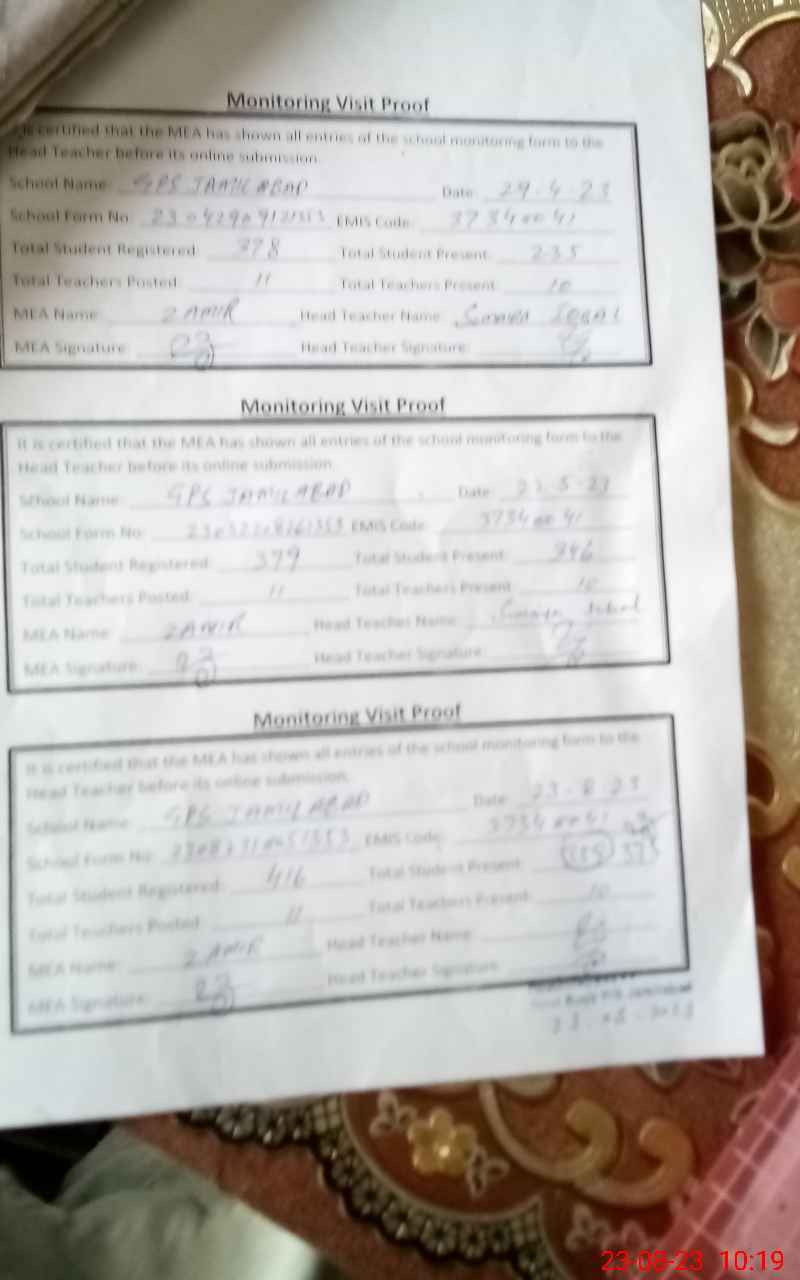 Monitoring Visit Proof
is certified that the MEA has shown all entries of the school monitoring form to the
Head Teacher before its online submission.
School Name: GPS JAMILABAD Date: 29-4-23
School Form No: EMIS Code:
Total Student Registered: 378 Total Student Present: 235
Total Teachers Posted: 11 Total Teachers Present: 10
MEA Name: ZAMIR Head Teacher Name:
MEA Signature: Head Teacher Signature:
Monitoring Visit Proof
It is certified that the MEA has shown all entries of the school monitoring form to the
Head Teacher before its online submission.
School Name: GPS JAMILABAD Date:
School Form No: EMIS Code:
Total Student Registered: 379 Total Student Present: 346
Total Teachers Posted: 11 Total Teachers Present: 10
MEA Name: ZAMIR Head Teacher Name:
MEA Signature: Head Teacher Signature:
Monitoring Visit Proof
It is certified that the MEA has shown all entries of the school monitoring form to the
Head Teacher before its online submission.
School Name: GPS JAMILABAD Date: 23-8-23
School Form No: EMIS Code:
Total Student Registered: 416 Total Student Present:
Total Teachers Posted: 11 Total Teachers Present: 10
MEA Name: ZAMIR Head Teacher Name:
MEA Signature: Head Teacher Signature:
23-08-23 10:19